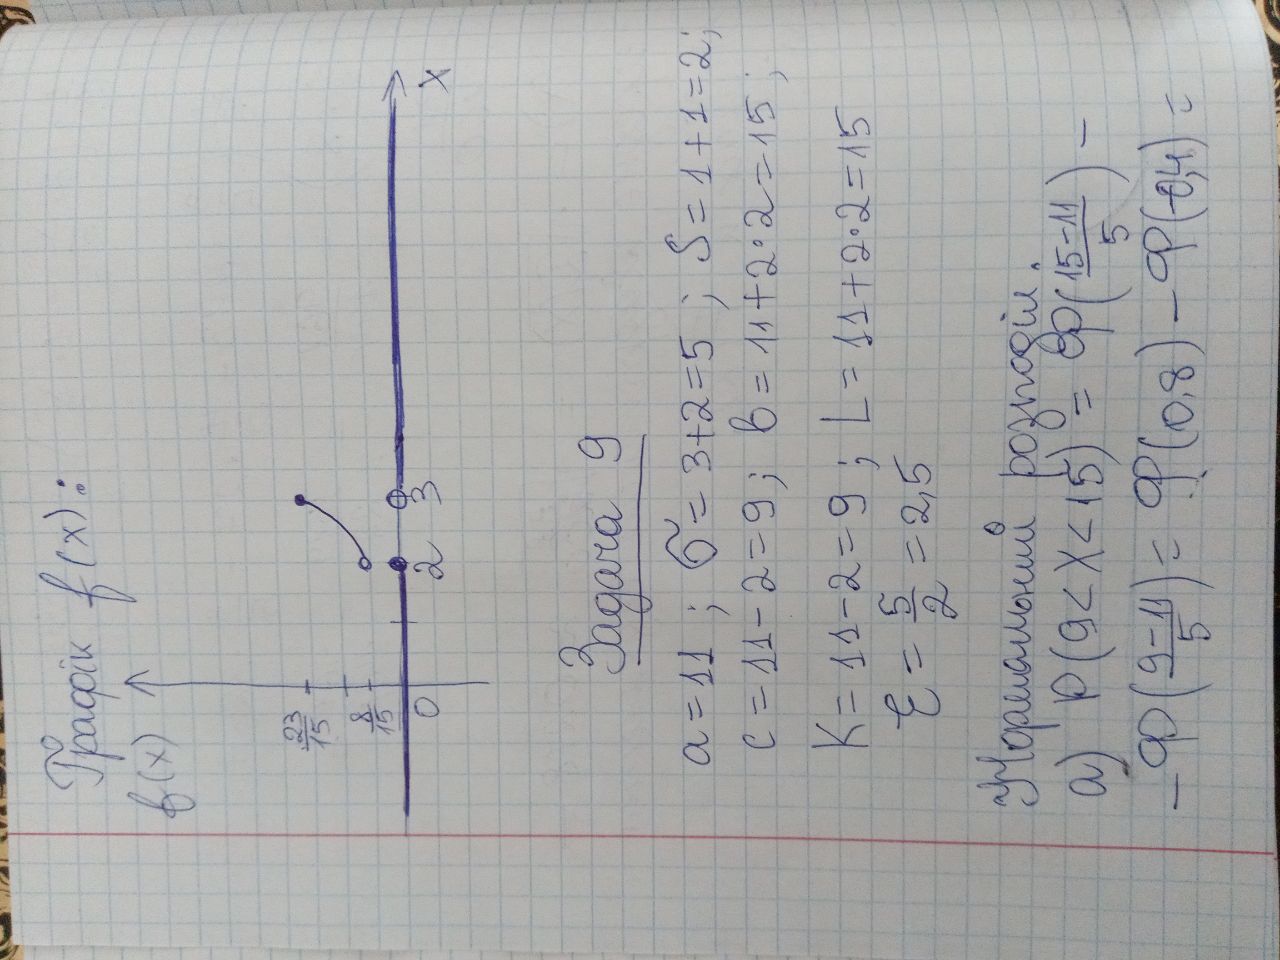 Графік f(x):
f(x)
23/15
8/15
0 2 3 x
Задача 9
a = 11 ; σ = 3+2=5 ; S = 1+1=2;
c = 11-2=9; b = 11+2·2=15;
K = 11-2=9; L = 11+2·2=15
ε = 5/2 = 2,5
Нормальний розподіл.
а) P(9<X<15) = Ф(15-11/5) -
- Ф(9-11/5) = Ф(0,8) - Ф(-0,4) =